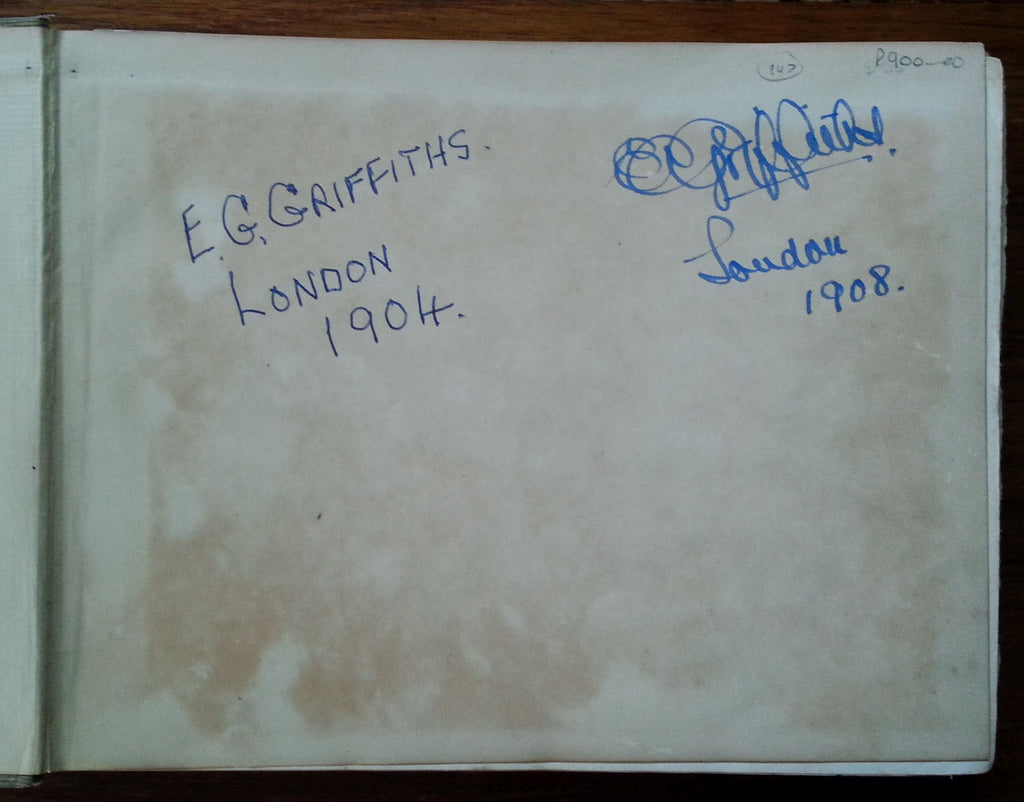 R900-00
E.G. GRIFFITHS.
LONDON
1904.
EG Griffiths.
London
1908.